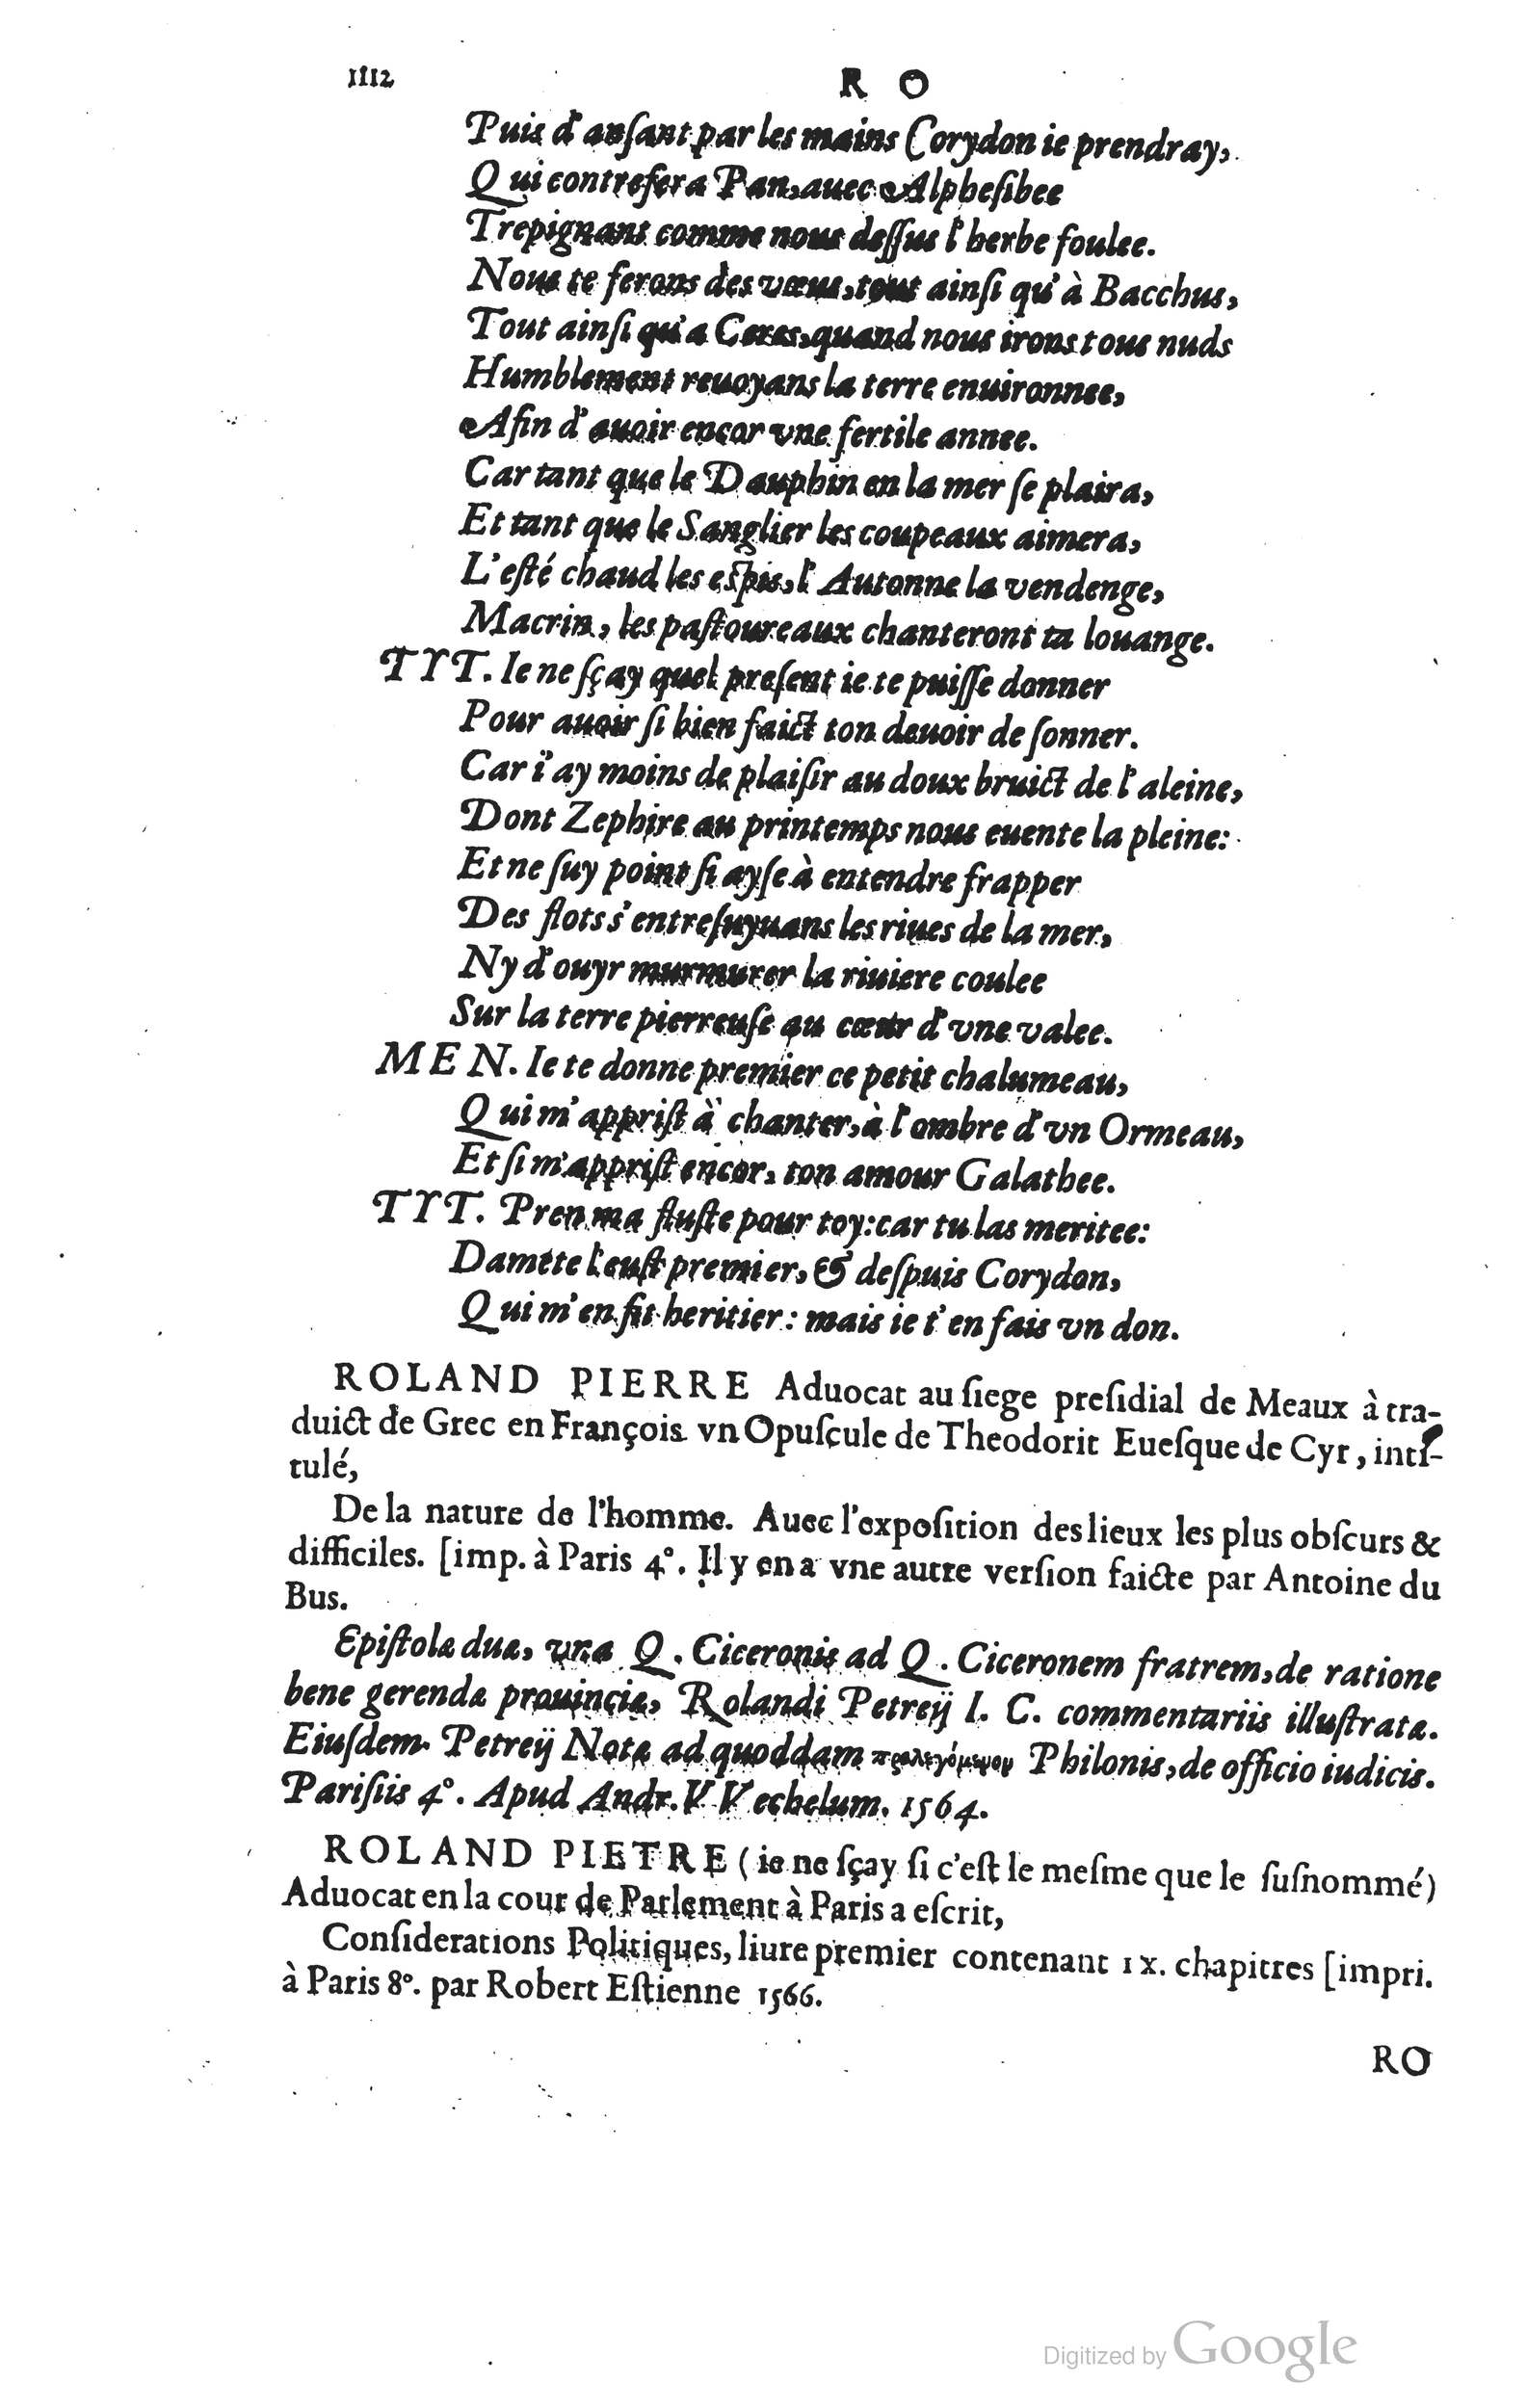 1112 R O
Puis d'ansant par les mains Corydon ie prendray,
Qui contrefera Pan, auec Alphesibee
Trepignant comme nous dessus l'herbe foulee.
Nous te ferons des vœus, tout ainsi qu'à Bacchus,
Tout ainsi qu'a Ceres, quand nous irons tous nuds
Humblement reuoyans la terre enuironnee,
Afin d'auoir encor vne fertile annee.
Car tant que le Dauphin en la mer se plaira,
Et tant que le Sanglier les coupeaux aimera,
L'esté chaud les espis, l'Autonne la vendenge,
Macrin, les pastoureaux chanteront ta louange.
TYT. Ie ne sçay quel present ie te puisse donner
Pour auoir si bien faict ton deuoir de sonner.
Car i'ay moins de plaisir au doux bruict de l'aleine,
Dont Zephire au printemps nous euente la pleine:
Et ne suy point si ayse à entendre frapper
Des flots s'entresuyuans les riues de la mer,
Ny d'ouyr murmurer la riuiere coulee
Sur la terre pierreuse au cœur d'vne valee.
MEN. Ie te donne premier ce petit chalumeau,
Qui m'apprist à chanter, à l'ombre d'vn Ormeau,
Et si m'apprist encor, ton amour Galathee.
TYT. Pren ma fluste pour toy: car tu las meritee:
Damete l'eust premier, & despuis Corydon,
Qui m'en fit heritier: mais ie t'en fais vn don.
ROLAND PIERRE Aduocat au siege presidial de Meaux à tra-
duict de Grec en François vn Opuscule de Theodorit Euesque de Cyr, inti-
tulé,
De la nature de l'homme. Auec l'exposition des lieux les plus obscurs &
difficiles. [imp. à Paris 4°. Il y en a vne autre version faicte par Antoine du
Bus.
Epistolæ duæ, vna Q. Ciceronis ad Q. Ciceronem fratrem, de ratione
bene gerendæ prouinciæ, Rolandi Petreij I. C. commentariis illustratæ.
Eiusdem Petreij Notæ ad quoddam προλεγόμενον Philonis, de officio iudicis.
Parisiis 4°. Apud Andr. VVechelum. 1564.
ROLAND PIETRE (ie ne sçay si c'est le mesme que le susnommé)
Aduocat en la cour de Parlement à Paris a escrit,
Considerations Politiques, liure premier contenant IX. chapitres [impri.
à Paris 8°. par Robert Estienne 1566.
RO
Digitized by Google